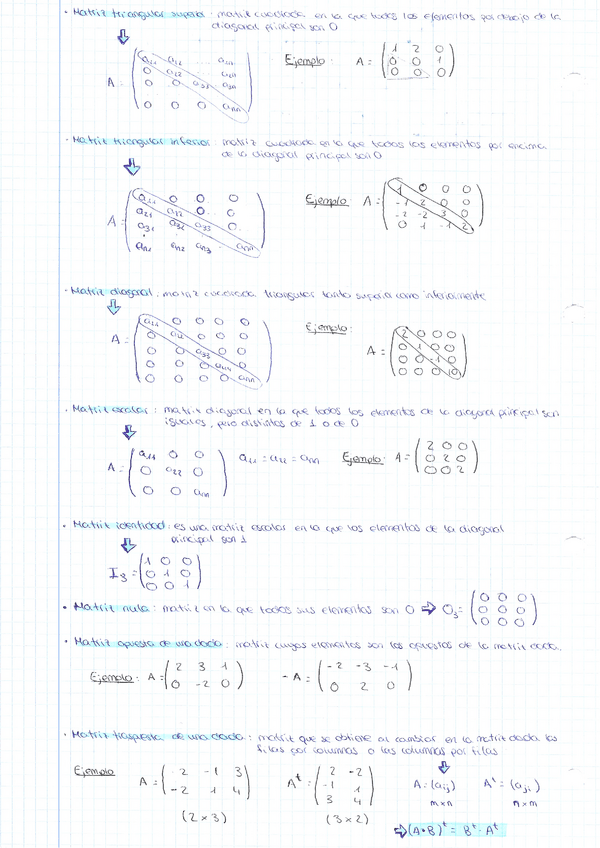 · Matriz triangular superior: matriz cuadrada en la que todos los elementos por debajo de la
diagonal principal son 0
A = ( a11 a12 ... a1n
0 a22 a2n
0 0 a33 a3n
0 0 0 ann )
Ejemplo: A = ( 1 2 0
0 0 1
0 0 0 )
· Matriz triangular inferior: matriz cuadrada en la que todos los elementos por encima
de la diagonal principal son 0
A = ( a11 0 0 0
a21 a22 0 0
a31 a32 a33 0
an1 an2 an3 ann )
Ejemplo: A = ( 1 0 0 0
-1 2 0 0
-2 -2 3 0
0 1 -1 2 )
· Matriz diagonal: matriz cuadrada triangular tanto superior como inferiormente
A = ( a11 0 0 0 0
0 a22 0 0 0
0 0 a33 0 0
0 0 0 a44 0
0 0 0 0 ann )
Ejemplo: A = ( 2 0 0 0
0 1 0 0
0 0 -1 0
0 0 0 10 )
· Matriz escalar: matriz diagonal en la que todos los elementos de la diagonal principal son
iguales, pero distintos de 1 o de 0
A = ( a11 0 0
0 a22 0
0 0 ann )
a11 = a22 = ann
Ejemplo: A = ( 2 0 0
0 2 0
0 0 2 )
· Matriz identidad: es una matriz escalar en la que los elementos de la diagonal
principal son 1
I3 = ( 1 0 0
0 1 0
0 0 1 )
· Matriz nula: matriz en la que todos sus elementos son 0 ⇒ O3 = ( 0 0 0
0 0 0
0 0 0 )
· Matriz opuesta de una dada: matriz cuyos elementos son los opuestos de la matriz dada.
Ejemplo: A = ( 2 3 1
0 -2 0 )
-A = ( -2 -3 -1
0 2 0 )
· Matriz traspuesta de una dada: matriz que se obtiene al cambiar en la matriz dada las
filas por columnas o las columnas por filas
Ejemplo A = ( 2 -1 3
-2 1 4 )
(2x3)
A^t = ( 2 -2
-1 1
3 4 )
(3x2)
A = (aij) A^t = (aji)
mxn nxm
⇒ (A·B)^t = B^t · A^t